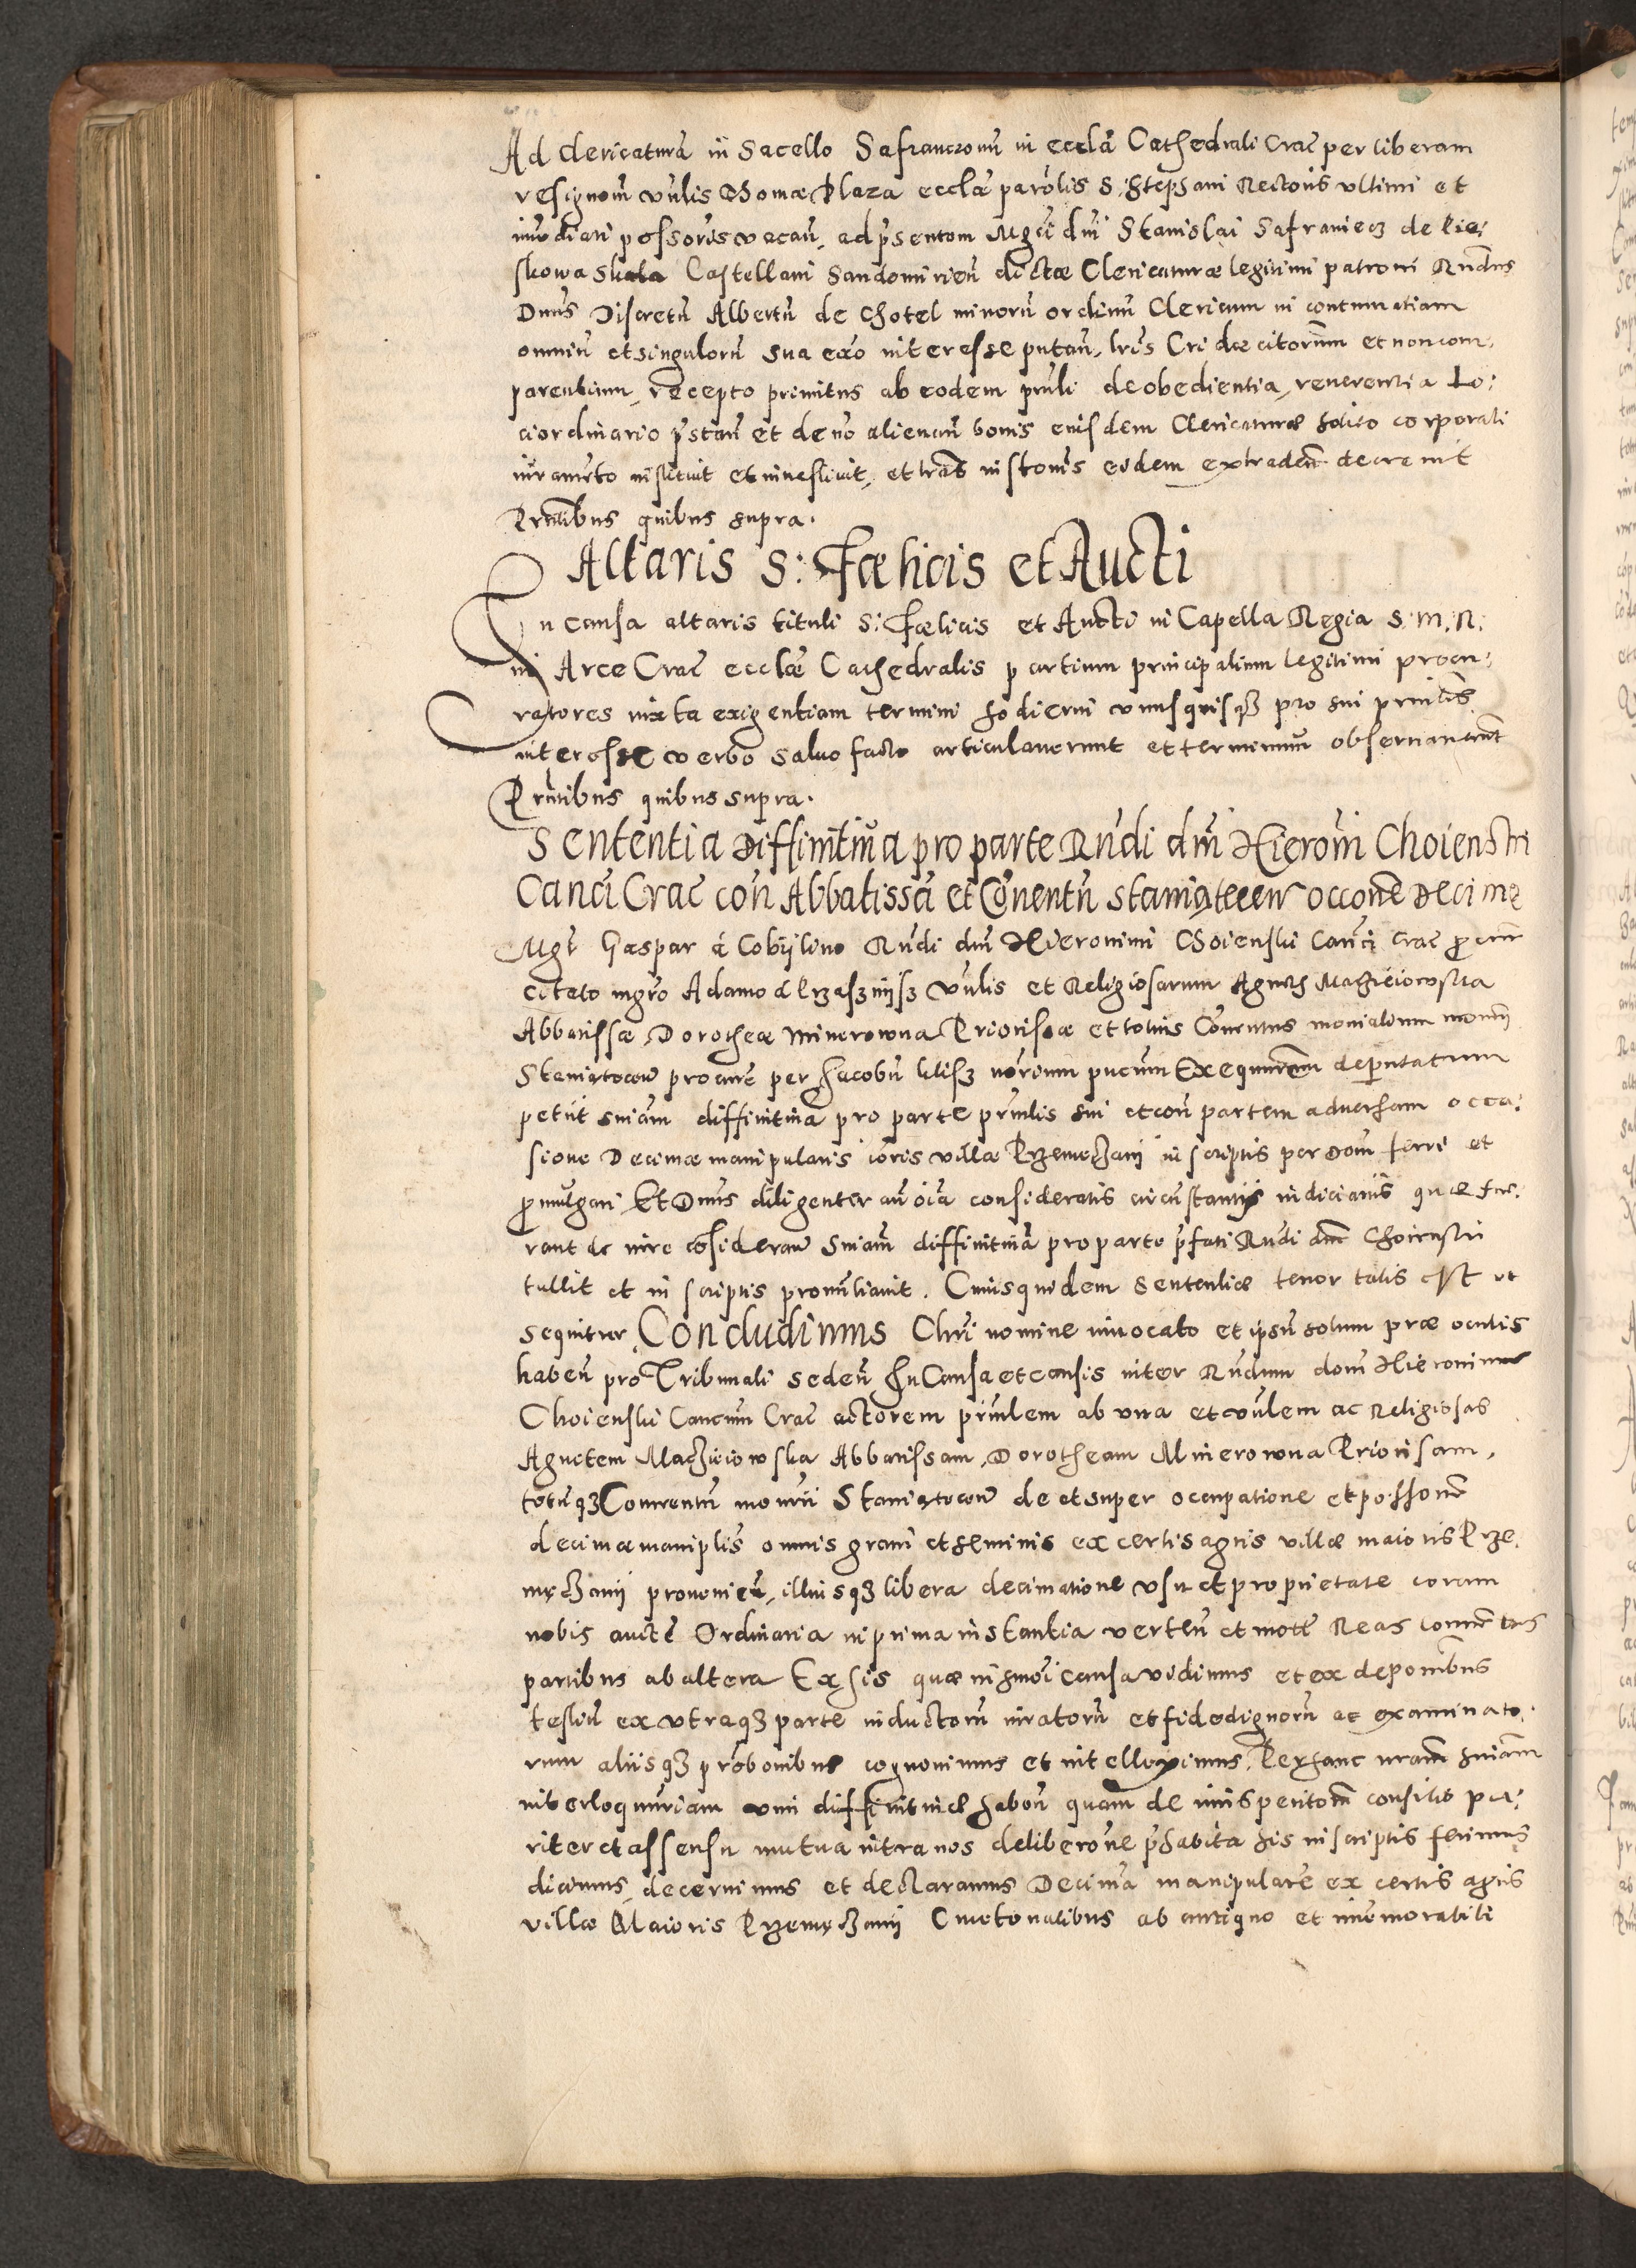 Ad clericaturã in Sacello Safranczonũ in ecclã Cathedrali Crac̃ per liberam
resignom̃ vñlis Thomæ Plaza ecclæ̃ parõlis S. Stephani Rectoris vltimi et
im̃ediati possoris vacañ, ad p̃sentom Mgci dni Stanislai Safraniecz de Pie,
skowa Skala Castellani Sandomirieñ dictæ Clericaturæ legitimi patroni Rñdus
Dnus Discretũ Albertũ de Chotel minorũ ordinũ Clericum in contumatiam
omniũ et singulorũ sua eẽo interesse putañ, lrĩs Cridæ citorum̃ et non com,
parentium, recepto primitus ab eodem prñli de obedientia, reuerentia Lo,
ci ordinario p̃stañ et de nõ alienañ bonis eiusdem Clericaturæ solito corporali
iuramẽto instituit et inuestiuit, et lrãs instomĩs eidem extradeñ decreuit
Prñtibus quibus supra.
Altaris S: Fœlicis et Aucti
In causa altaris tituli S: Fœlicis et Aucti in Capella Regia S. M. R.
in Arce Crac̃ ecclæ̃ Cathedralis partium principalium legitimi procu,
ratores iuxta exigentiam termini hodierni vnusquisqz pro sui prñlis
interesse verbo saluo facto articulauerunt et terminum obseruauerunt
Prñtibus quibus supra.
Sententia Diffinitiua pro parte Rñdi dñi Hieroñi Choienski
Canci Crac̃ coñ Abbatissã et Cõuentũ Staniąteceñ occone Decime
Mgr Gaspar à Cobÿlino Rñdi dni Hieronimi Choienski Canci Crac̃ procur
citato mgro Adamo à Przasznijsz vñlis et Religiosarum Agnetis Maczieiowska
Abbatissæ, Dorotheæ Minerowna Priorissæ et totius Cõuentus monialium monrii
Staniąteceñ procure per Jacobũ notrium pucum Exequutorem deputatum
petiit sniam diffinitiuã pro parte prñlis sui et coñ partem aduersam occa,
sione Decimæ manipularis ioris villæ Przemęczanÿ in scriptis per Dom ferri et
promulgari Et Dnus diligenter añ oĩa consideratis circũstantijs iudiciarijs quæ fue,
rant de iure cõsiderañ Sniam diffinitiuã pro parte p̃fati Rñdi dni Choienski
tullit et in scriptis pronũtiauit. Cuiusquidem Sententiæ tenor talis est vt
sequitur. Concludimus Chri nomine inuocato et ipsũ solum præ oculis
habeñ pro Tribunali sedeñ In Causa et causis inter Rndum dom Hieronimum
Choienski Cancum Crac̃ actorem prñlem ab vna et vñlem ac Religiosas
Agnetem Macziciowska Abbatissam, Dorotheam Minerowna Priorisam,
totũqz Conuentũ monrii Staniąteceñ de et super occupatione et possone
decimæ maniplis omnis grani et seminis ex certis agris villæ maioris Prze,
męczanij prouenieñ, illiusqz libera decimatione vsu et proprietate coram
nobis aucte Ordinaria in prima instantia verteñ et mott Reas conuentas
partibus ab altera Ex his quæ in hmõi causa vidimus et ex deponibus
testiũ ex vtraqz parte inductorũ iuratorũ et fidedignorũ ac examinato,
rum aliisqz probonibus cognouimus et intelleximus. Per hanc nram sniam
interloqutriam vim diffinitiuæ habeñ quam de iurisperitom consilio pa,
riter et assensu mutua intra nos deliberone p̃habita his in scriptis ferimus
dicimus, decernimus et declaramus Decimã manipularẽ ex certis agris
villæ Maioris Przemęczanij Cmetonalibus ab antiquo et immemorabili